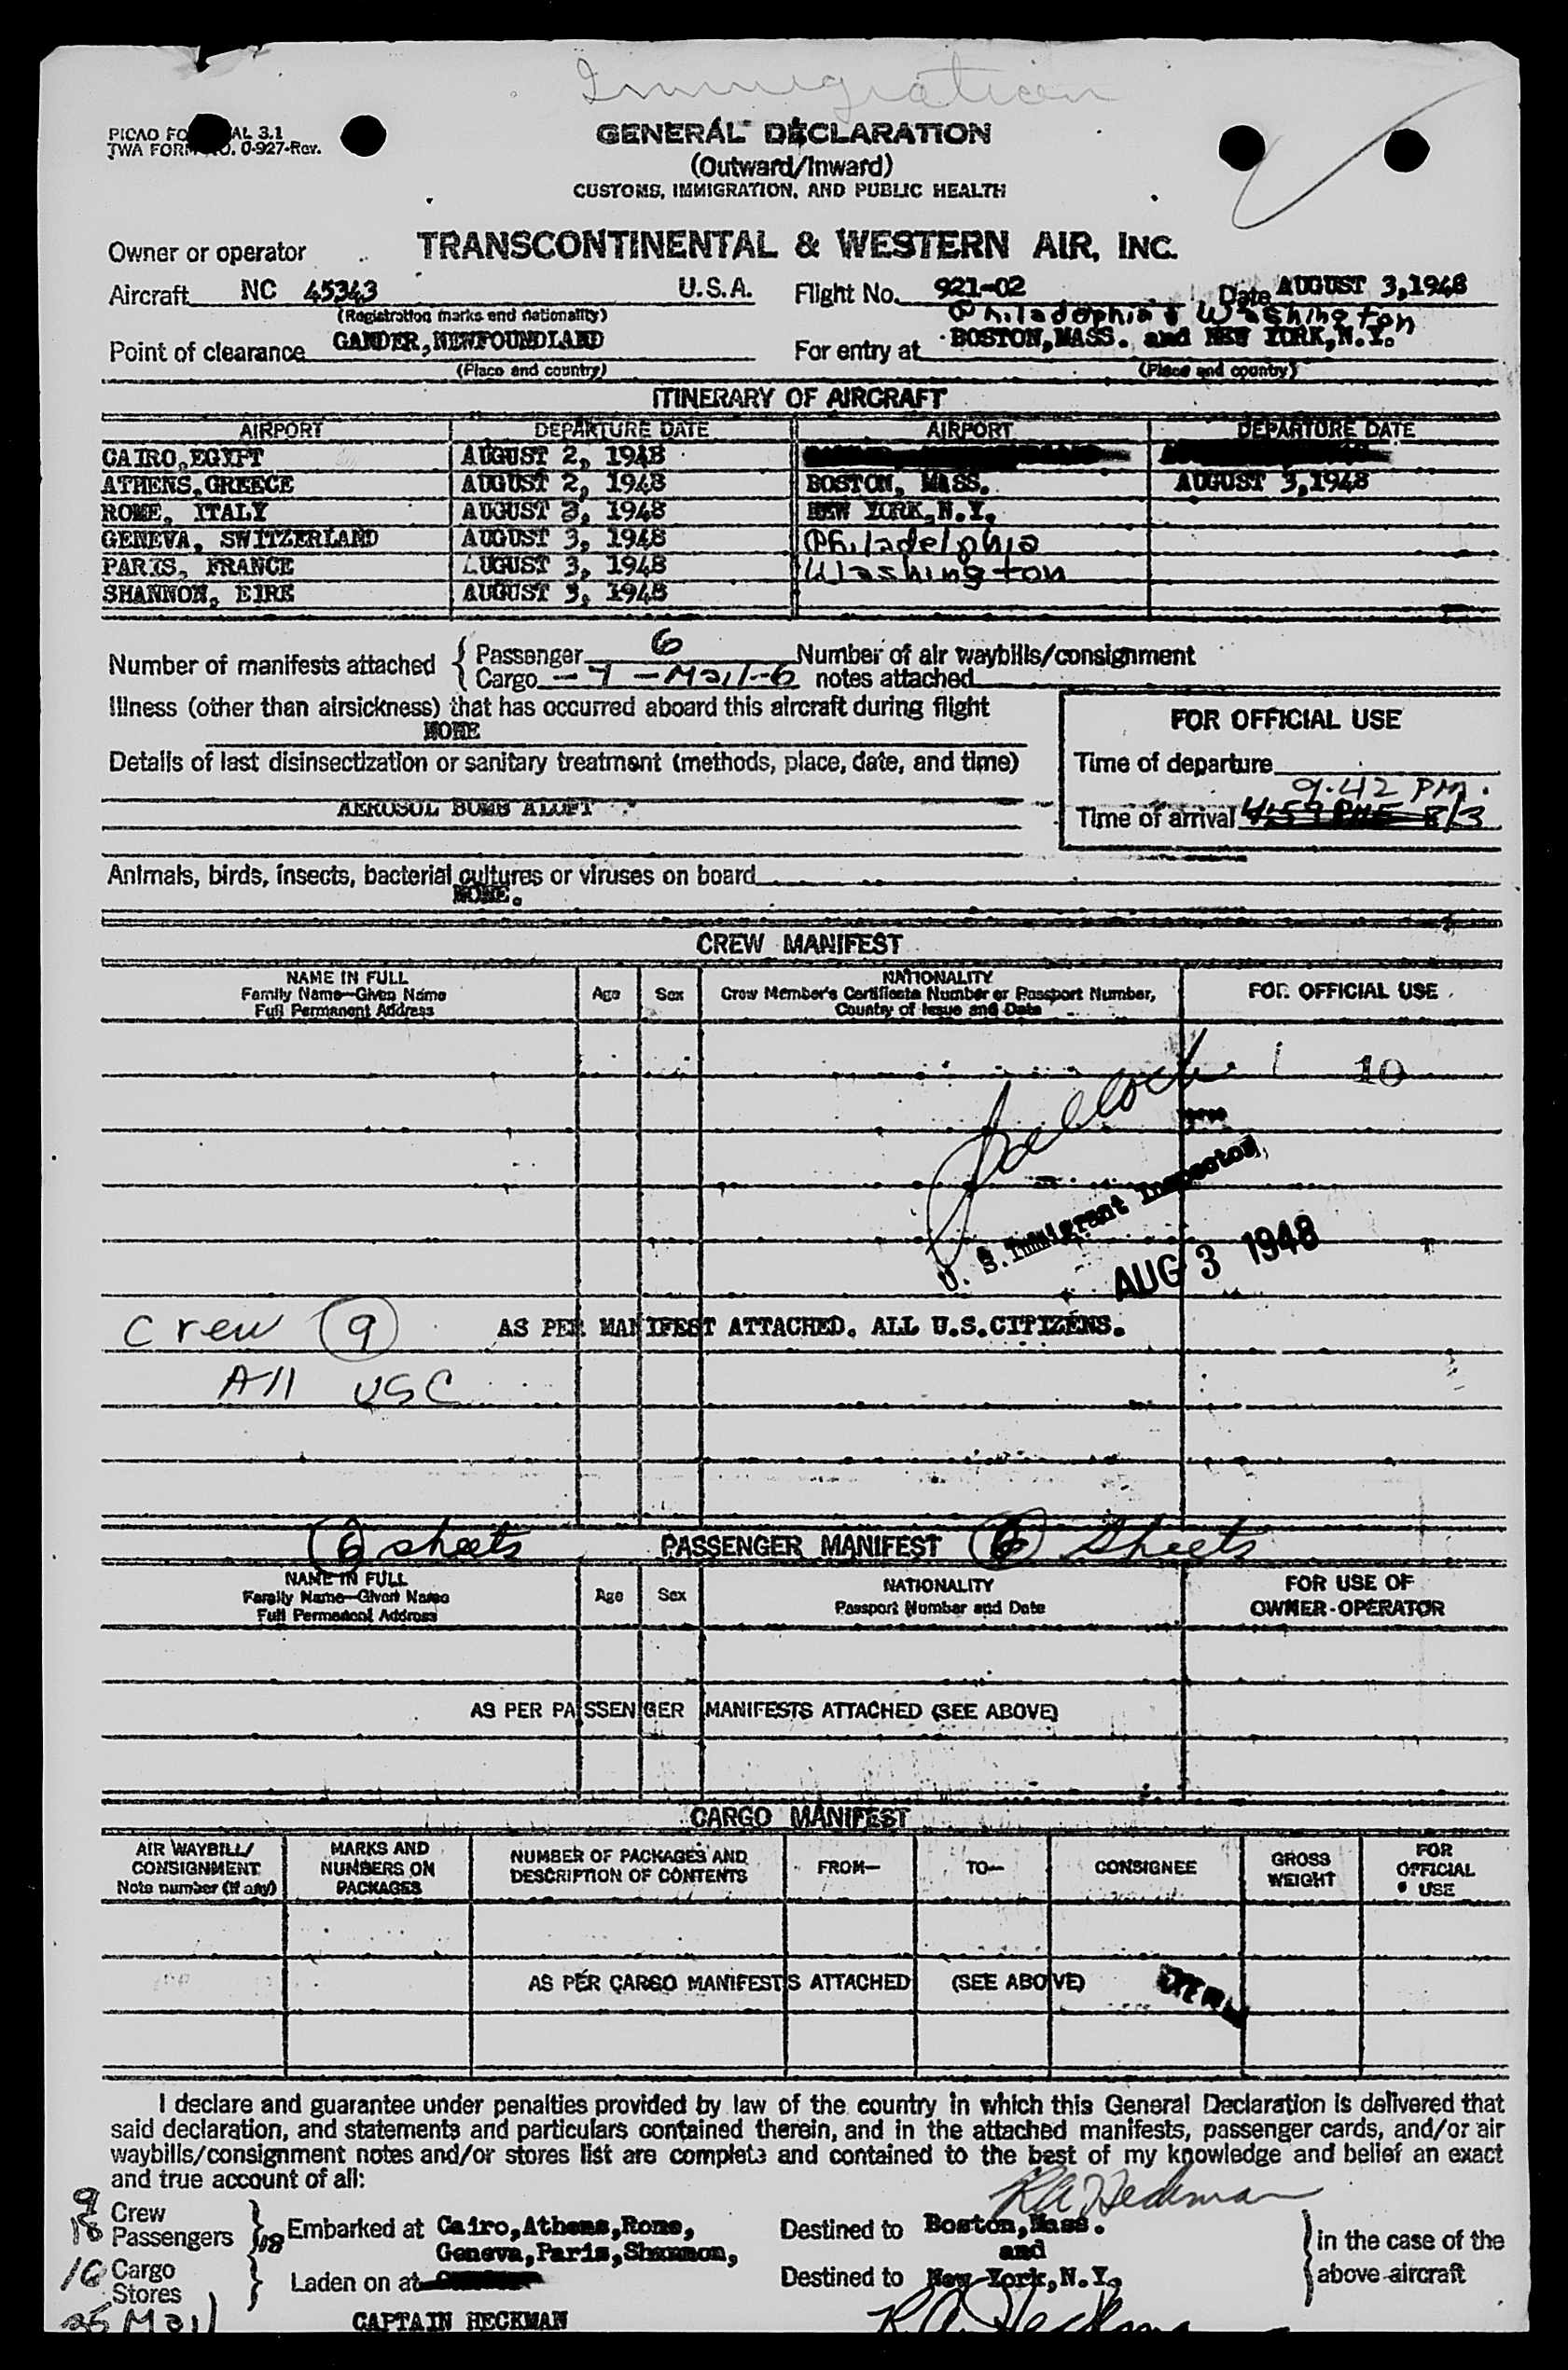 Immigration
PICAO FO AL 3.1
TWA FORM NO. 0-927-Rev.
GENERAL DECLARATION
(Outward/Inward)
CUSTOMS, IMMIGRATION, AND PUBLIC HEALTH
Owner or operator TRANSCONTINENTAL & WESTERN AIR, INC.
Aircraft NC 45343 U.S.A. Flight No. 921-02 Date AUGUST 3,1948
(Registration marks and nationality) Philadelphia & Washington
Point of clearance GANDER, NEWFOUNDLAND For entry at BOSTON, MASS. and NEW YORK, N.Y.
(Place and country) (Place and country)
ITINERARY OF AIRCRAFT
AIRPORT DEPARTURE DATE AIRPORT DEPARTURE DATE
CAIRO,EGYPT AUGUST 2, 1948
ATHENS,GREECE AUGUST 2, 1948 BOSTON, MASS. AUGUST 3,1948
ROME, ITALY AUGUST 3, 1948 NEW YORK,N.Y.
GENEVA, SWITZERLAND AUGUST 3, 1948 Philadelphia
PARIS, FRANCE AUGUST 3, 1948 Washington
SHANNON, EIRE AUGUST 3, 1948
Number of manifests attached { Passenger 6 Number of air waybills/consignment
Cargo - 7 - Mail-6 notes attached
Illness (other than airsickness) that has occurred aboard this aircraft during flight
NONE
FOR OFFICIAL USE
Details of last disinsectization or sanitary treatment (methods, place, date, and time)
Time of departure
9.42 PM.
AEROSOL BOMB ALOFT
Time of arrival 4:59 PME 8/3
Animals, birds, insects, bacterial cultures or viruses on board
NONE.
CREW MANIFEST
NAME IN FULL
Family Name—Given Name
Full Permanent Address
Age Sex
NATIONALITY
Crew Member's Certificate Number or Passport Number,
Country of Issue and Date
FOR OFFICIAL USE
10
U. S. Immigrant Inspector
AUG 3 1948
Crew 9 AS PER MANIFEST ATTACHED. ALL U.S.CITIZENS.
All USC
6 sheets PASSENGER MANIFEST 6 Sheets
NAME IN FULL
Family Name—Given Name
Full Permanent Address
Age Sex
NATIONALITY
Passport Number and Date
FOR USE OF
OWNER-OPERATOR
AS PER PASSENGER MANIFESTS ATTACHED (SEE ABOVE)
CARGO MANIFEST
AIR WAYBILL/
CONSIGNMENT
Note number (if any)
MARKS AND
NUMBERS ON
PACKAGES
NUMBER OF PACKAGES AND
DESCRIPTION OF CONTENTS
FROM—
TO—
CONSIGNEE
GROSS
WEIGHT
FOR
OFFICIAL
USE
AS PER CARGO MANIFESTS ATTACHED (SEE ABOVE)
I declare and guarantee under penalties provided by law of the country in which this General Declaration is delivered that
said declaration, and statements and particulars contained therein, and in the attached manifests, passenger cards, and/or air
waybills/consignment notes and/or stores list are complete and contained to the best of my knowledge and belief an exact
and true account of all:
RA Heckman
9 Crew
18 Passengers } 18 Embarked at Cairo,Athens,Rome, Destined to Boston,Mass.
Geneva,Paris,Shannon, and
16 Cargo
Stores } Laden on at Destined to New York,N.Y.
in the case of the
above aircraft
25 Mail CAPTAIN HECKMAN R.A. Heckman